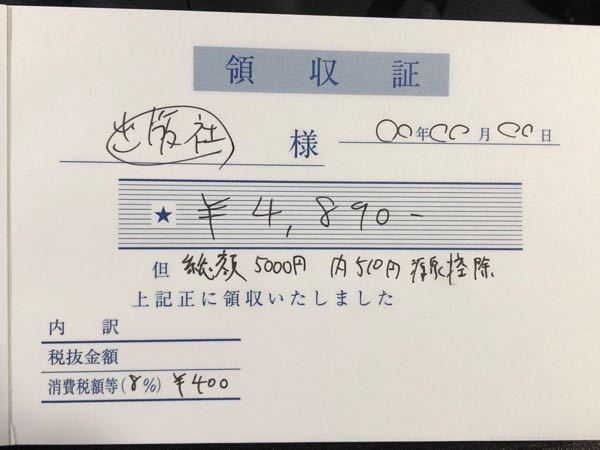 領収証
出版社 様 〇〇年〇〇月〇〇日
★ ¥4,890-
但 総額5000円 内510円源泉控除
上記正に領収いたしました
内訳
税抜金額
消費税額等(8%) ¥400